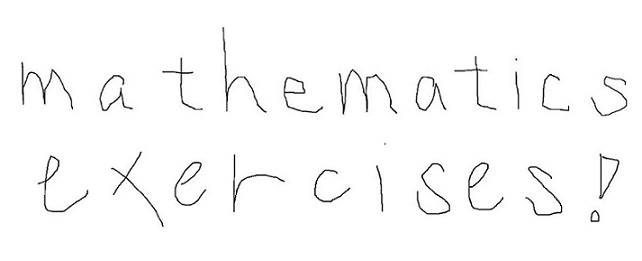 mathematics
exercises!